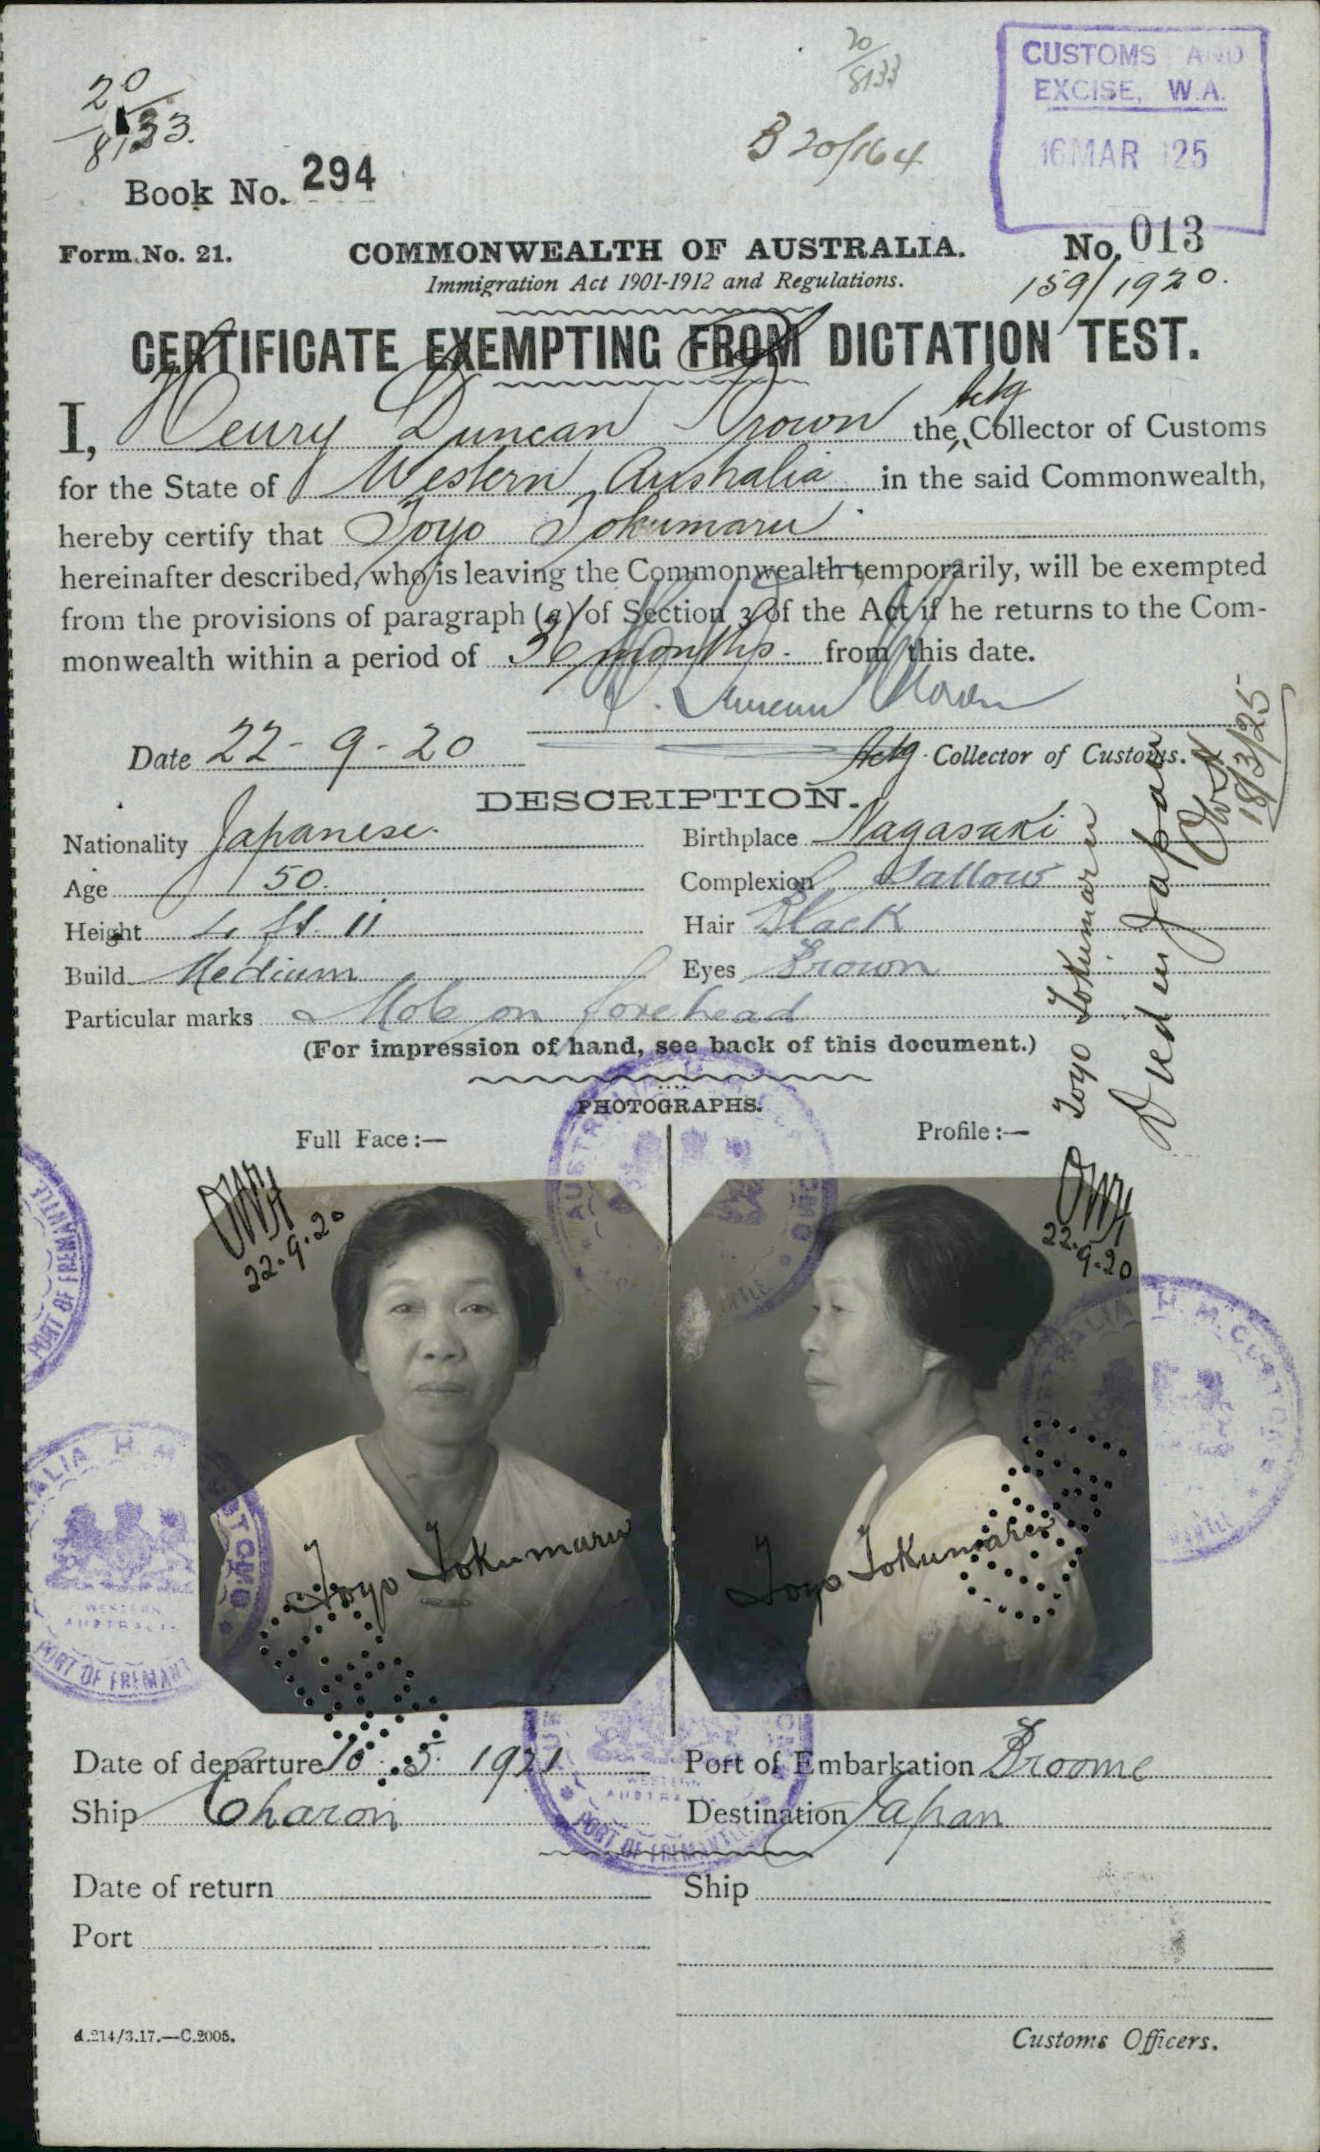 20/8133.
20/8133
B 20/164
CUSTOMS AND
EXCISE, W.A.
16 MAR 1925
Book No. 294
Form No. 21.
COMMONWEALTH OF AUSTRALIA.
No. 013
Immigration Act 1901-1912 and Regulations.
159/1920.
CERTIFICATE EXEMPTING FROM DICTATION TEST.
I, Henry Duncan Brown the Actg Collector of Customs
for the State of Western Australia in the said Commonwealth,
hereby certify that Toyo Tokumaru
hereinafter described, who is leaving the Commonwealth temporarily, will be exempted
from the provisions of paragraph (a) of Section 3 of the Act if he returns to the Com-
monwealth within a period of 36 months. from this date.
H. Duncan Brown
Date 22-9-20
Actg Collector of Customs.
DESCRIPTION.
Nationality Japanese.
Birthplace Nagasaki
Age 50.
Complexion Sallow
Height 4 ft. 11
Hair Black
Build Medium
Eyes Brown
Particular marks Mole on forehead
(For impression of hand, see back of this document.)
Toyo Tokumaru
Died in Japan
OWH
18/3/25
PHOTOGRAPHS.
Full Face:—
Profile:—
OWH
22-9-20
OWH
22-9-20
Toyo Tokumaru
Toyo Tokumaru
AUSTRALIA H.M. CUSTOMS
WESTERN
AUSTRALIA
PORT OF FREMANTLE
Date of departure 10.5.1921
Port of Embarkation Broome
Ship Charon
Destination Japan
Date of return
Ship
Port
A.214/3.17.—C.2005.
Customs Officers.